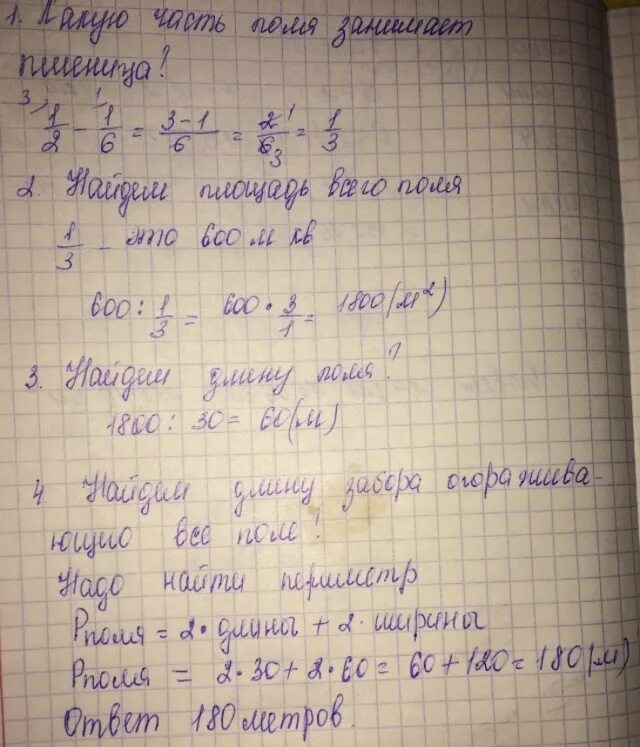 1. Какую часть поля занимает
пшеница?
3/ 1/
1/2 - 1/6 = 3-1/6 = 2/6 1 3 = 1/3
2. Найдем площадь всего поля
1/3 - это 600 м кв
600 : 1/3 = 600 · 3/1 = 1800 (м²)
3. Найдем длину поля?
1800 : 30 = 60 (м)
4. Найдем длину забора огоражива-
ющую все поле!
Надо найти периметр
Pполя = 2 · длины + 2 · ширины
Pполя = 2 · 30 + 2 · 60 = 60 + 120 = 180 (м)
Ответ 180 метров.